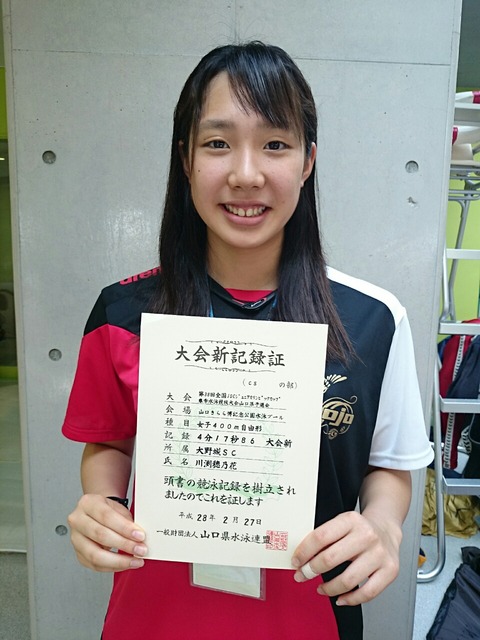 arena
大会新記録証
(CS の部)
大会 第38回全国JOCジュニアオリンピックカップ
春季水泳競技大会山口県予選会
会場 山口きらら博記念公園水泳プール
種目 女子400m自由形
記録 4分17秒86 大会新
所属 大野城SC
氏名 川渕穂乃花
頭書の競泳記録を樹立され
ましたのでこれを証します
平成 28年 2月 27日
一般財団法人 山口県水泳連盟